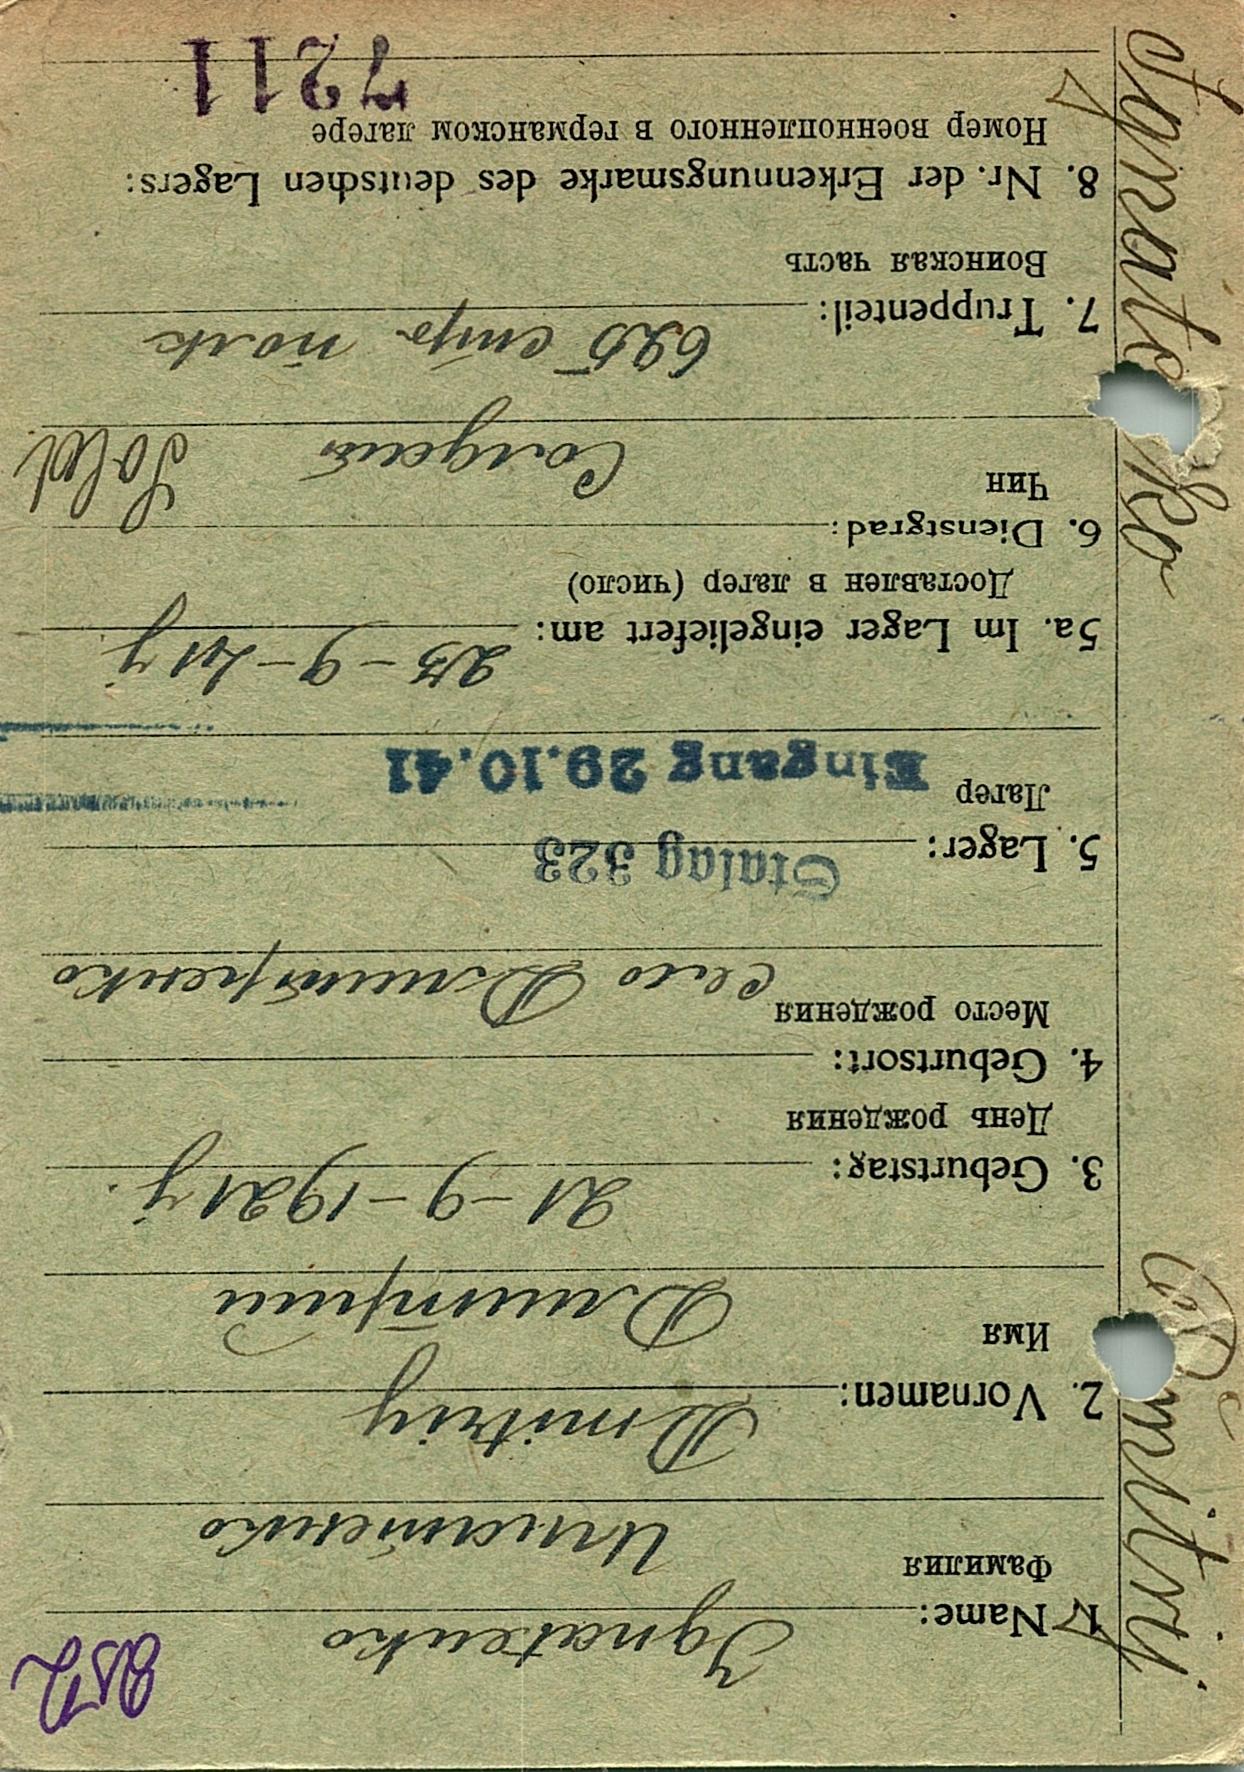 252
1. Name: Ignatenko
Фамилия Игнатенко
2. Vornamen: Dmitriy
Имя Дмитрий
3. Geburtstag: 21-9-1921 j.
День рождения
4. Geburtsort:
Место рождения село Дмитренко
5. Lager: Stalag 323
Лагер Eingang 29.10.41
5a. Im Lager eingeliefert am: 23-9-41 j
Доставлен в лагер (число)
6. Dienstgrad:
Чин Солдат Sold
7. Truppenteil: 625 стр полк
Воинская часть
8. Nr. der Erkennungsmarke des deutschen Lagers:
Номер военнопленного в германском лагере
7211
Ignatenko Dmitrij